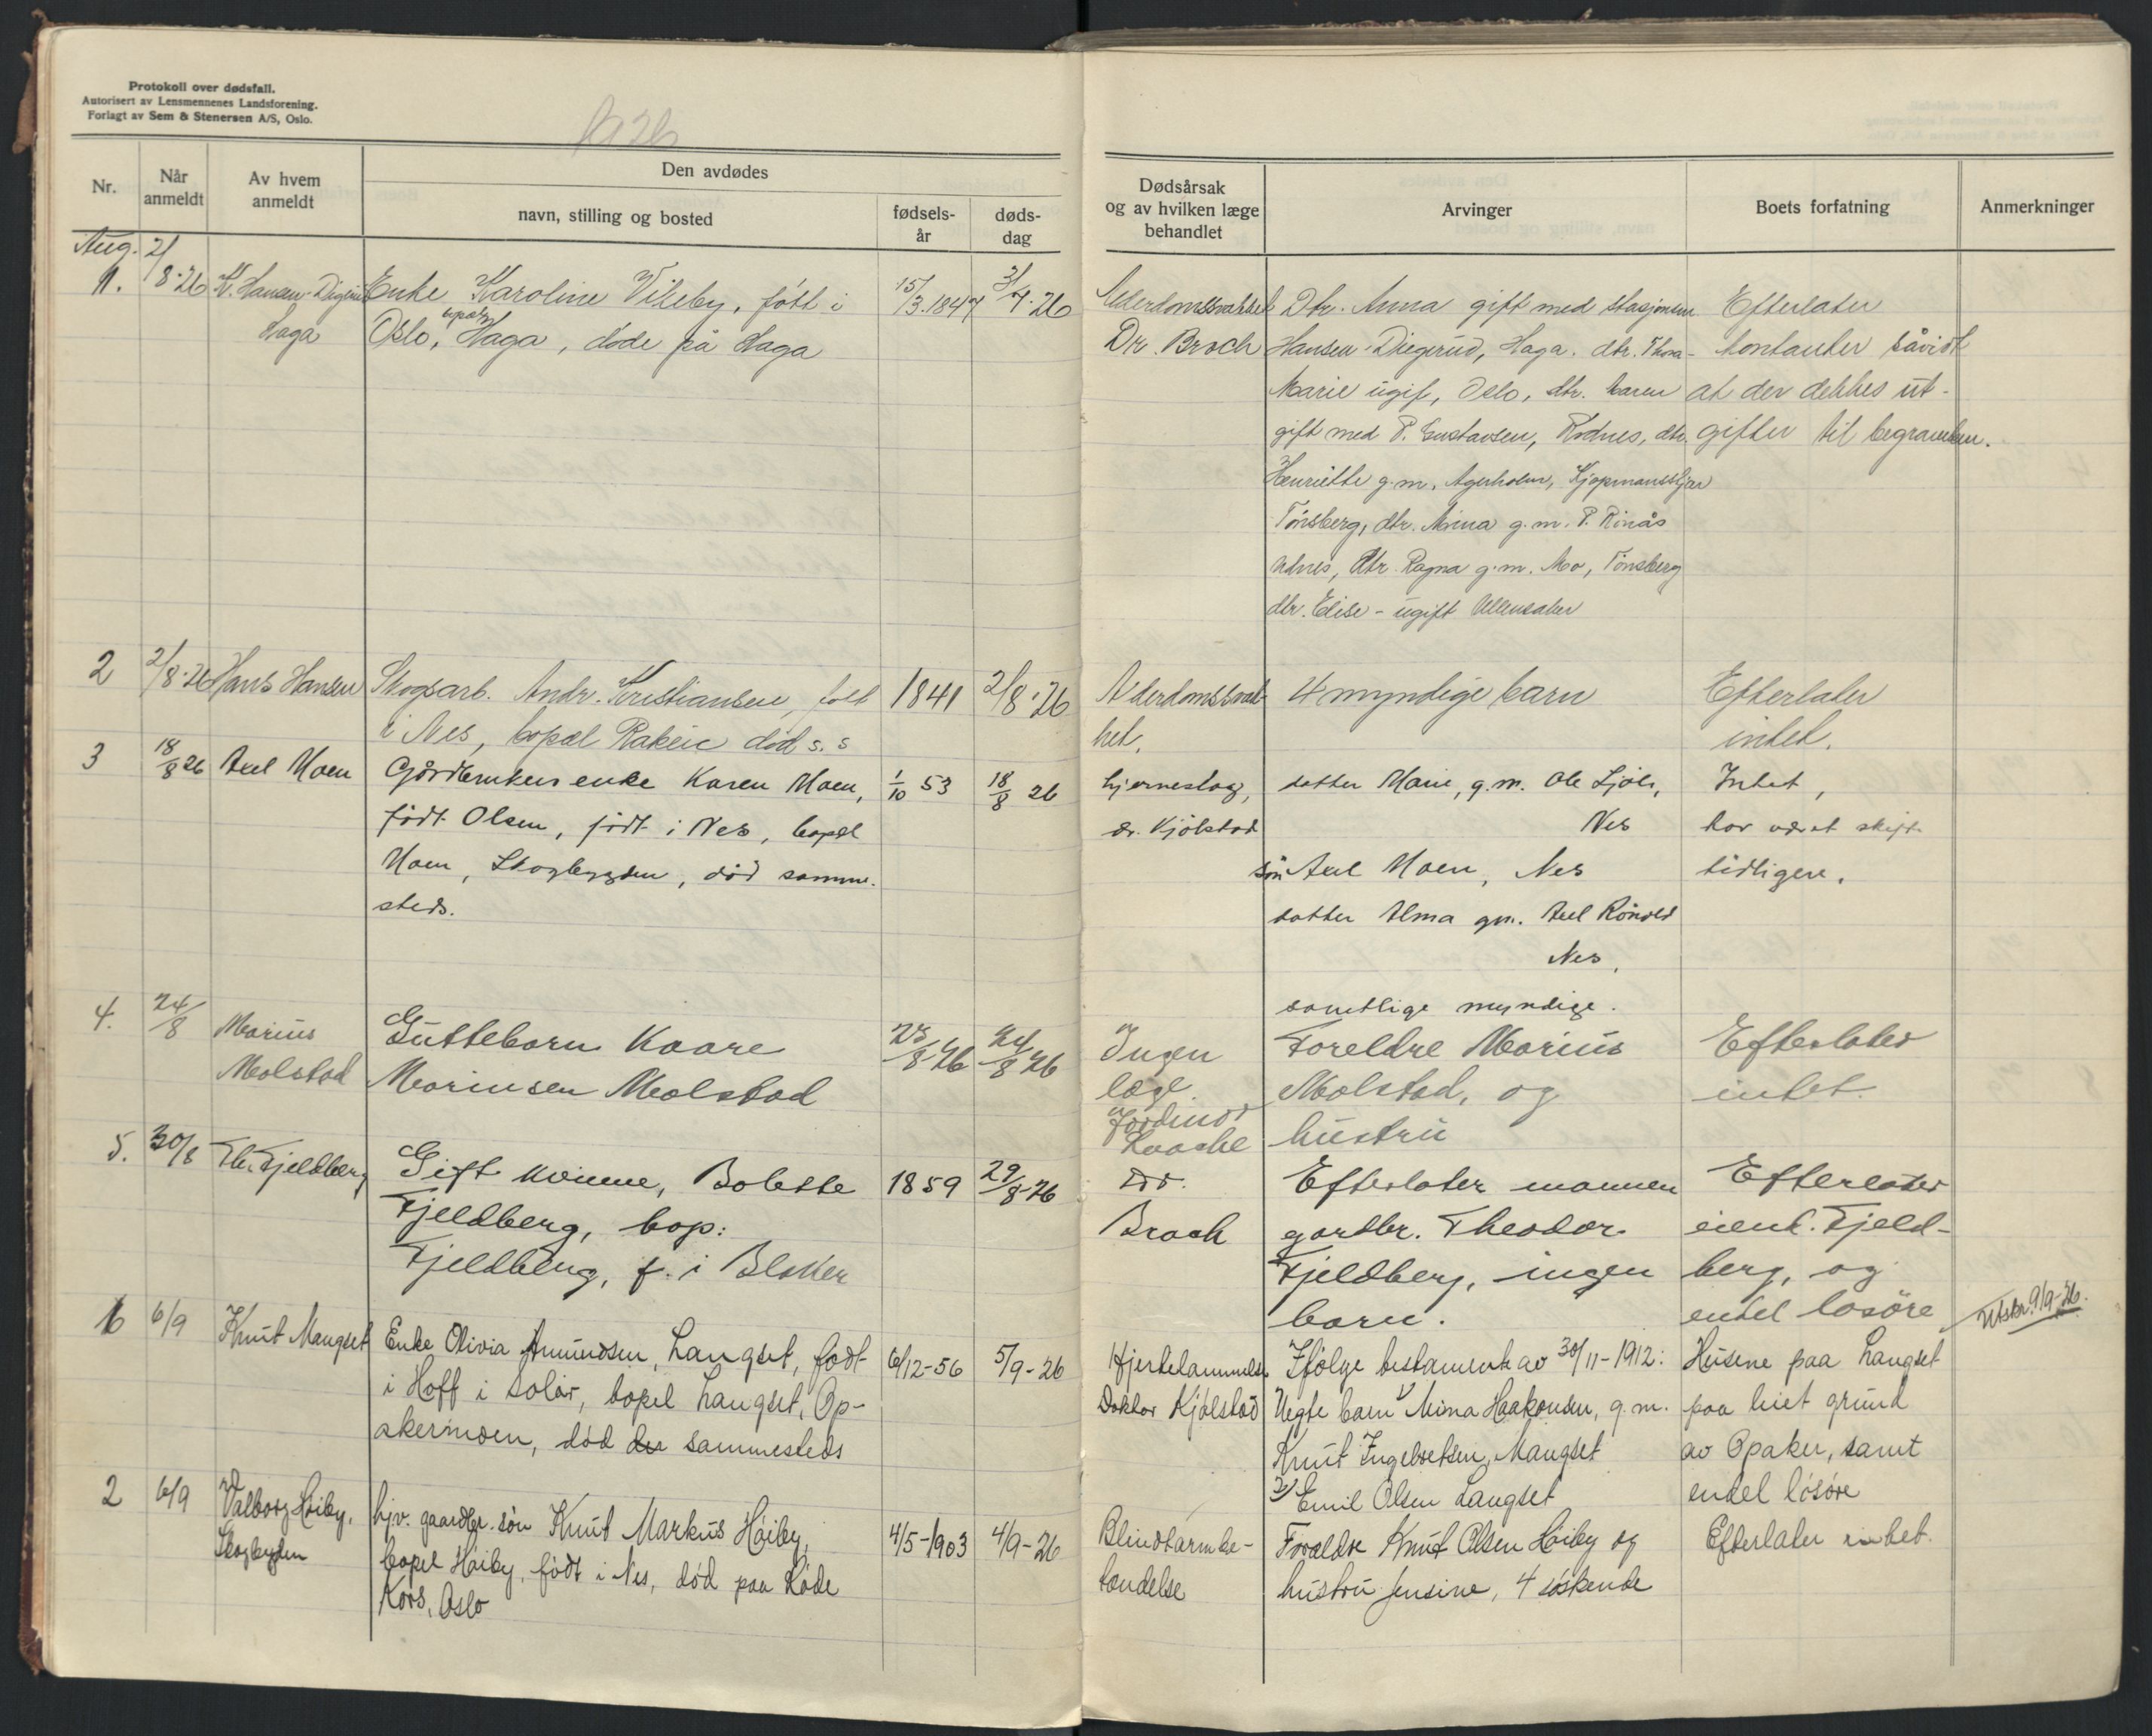 Protokoll over dødsfall.
Autorisert av Lensmennenes Landsforening.
Forlagt av Sem & Stenersen A/S, Oslo.
1926
Nr.
Når anmeldt
Av hvem anmeldt
Den avdødes
navn, stilling og bosted
fødsels-år
døds-dag
Dødsårsak og av hvilken læge behandlet
Arvinger
Boets forfatning
Anmerkninger
Aug.
1.
2/8-26
K. Hansen-Digerud
Haga
Enke Karoline Vileby, født i
Oslo, bopæl Haga, døde på Haga
15/3.1847
Alderdomssvakhet
Dr. Broch
Dtr. Anna gift med stasjonsm
Hansen Diegerud, Haga. dtr. Thora
Marie ugift, Oslo, dtr. Karen
gift med P. Gustavsen, dtr.
Henriette g.m. Agerholm, Kjøpmanskjær
Tønsberg, dtr. Anna g.m. P. Rinås
dtr. Ragna g.m. Mo, Tønsberg
dtr. Elise - ugift Ullensaker
Efterlater
kontanter såvidt
at der dekkes ut-
gifter til begravelsen.
2
2/8-26
Hans Hansen
Skogsarb. Andr. Kristiansen, født
i Nes, bopæl Rakeie død s. s
1841
2/8-26
Alderdomssvak-
het.
4 myndige barn
Efterlater
intet.
3
18/8 26
Axel Moen
Gårdbrukerenke Karen Moen,
født Olsen, født i Nes, bopæl
Moen, Skogbygden, død samme-
steds.
1/10 53
18/8 26
hjerneslag,
dr. Kjölstad
datter Marie, g.m. Ole
Nes
sön Axel Moen, Nes
datter Alma gm. Axel
Nes,
samtlige myndige.
Intet,
har været skift
tidligere.
4.
24/8
Marius
Molstad
Guttebarn Kaare
Mariusen Molstad
23/8-26
24/8 26
Ingen
læge.
Jordmor
Laache
Foreldre Marius
Molstad, og
hustru
Efterlater
intet.
5.
30/8
Th. Fjeldberg
Gift kvinne, Bolette
Fjeldberg, bop:
Fjeldberg, f. i Blaker
1859
29/8-26
Dr.
Broch
Efterlater mannen
gardbr. Theodor
Fjeldberg, ingen
barn.
Efterlater
eiend. Fjeld-
berg, og
endel løsöre
Utskr. 9/9-26.
6
6/9
Knut Mangset
Enke Olivia Amundsen, Langset, født
i Hoff i Solör, bopel Langset, Op-
akermoen, död der sammesteds
6/12-56
5/9-26
Hjertelammelse
Doktor Kjölstad
Ifölge testamente av 30/11-1912:
Uegte barn 1/ Mina Haakonsen, g.m.
Knut Ingebretsen, Mangset
2/ Emil Olsen Langset
Husene paa Langset
paa leiet grund
av Opaker, samt
endel lösöre
2
6/9
Valborg Höiby,
Skogbygden
hjv. gaardbr. sön Knut Markus Höiby,
bopel Höiby, födt i Nes, död paa Röde
Kors, Oslo
4/5-1903
4/9-26
Blindtarmbe-
tændelse
Foraldre Knut Olsen Höiby og
hustru Jensine, 4 söskende
Efterlater intet.